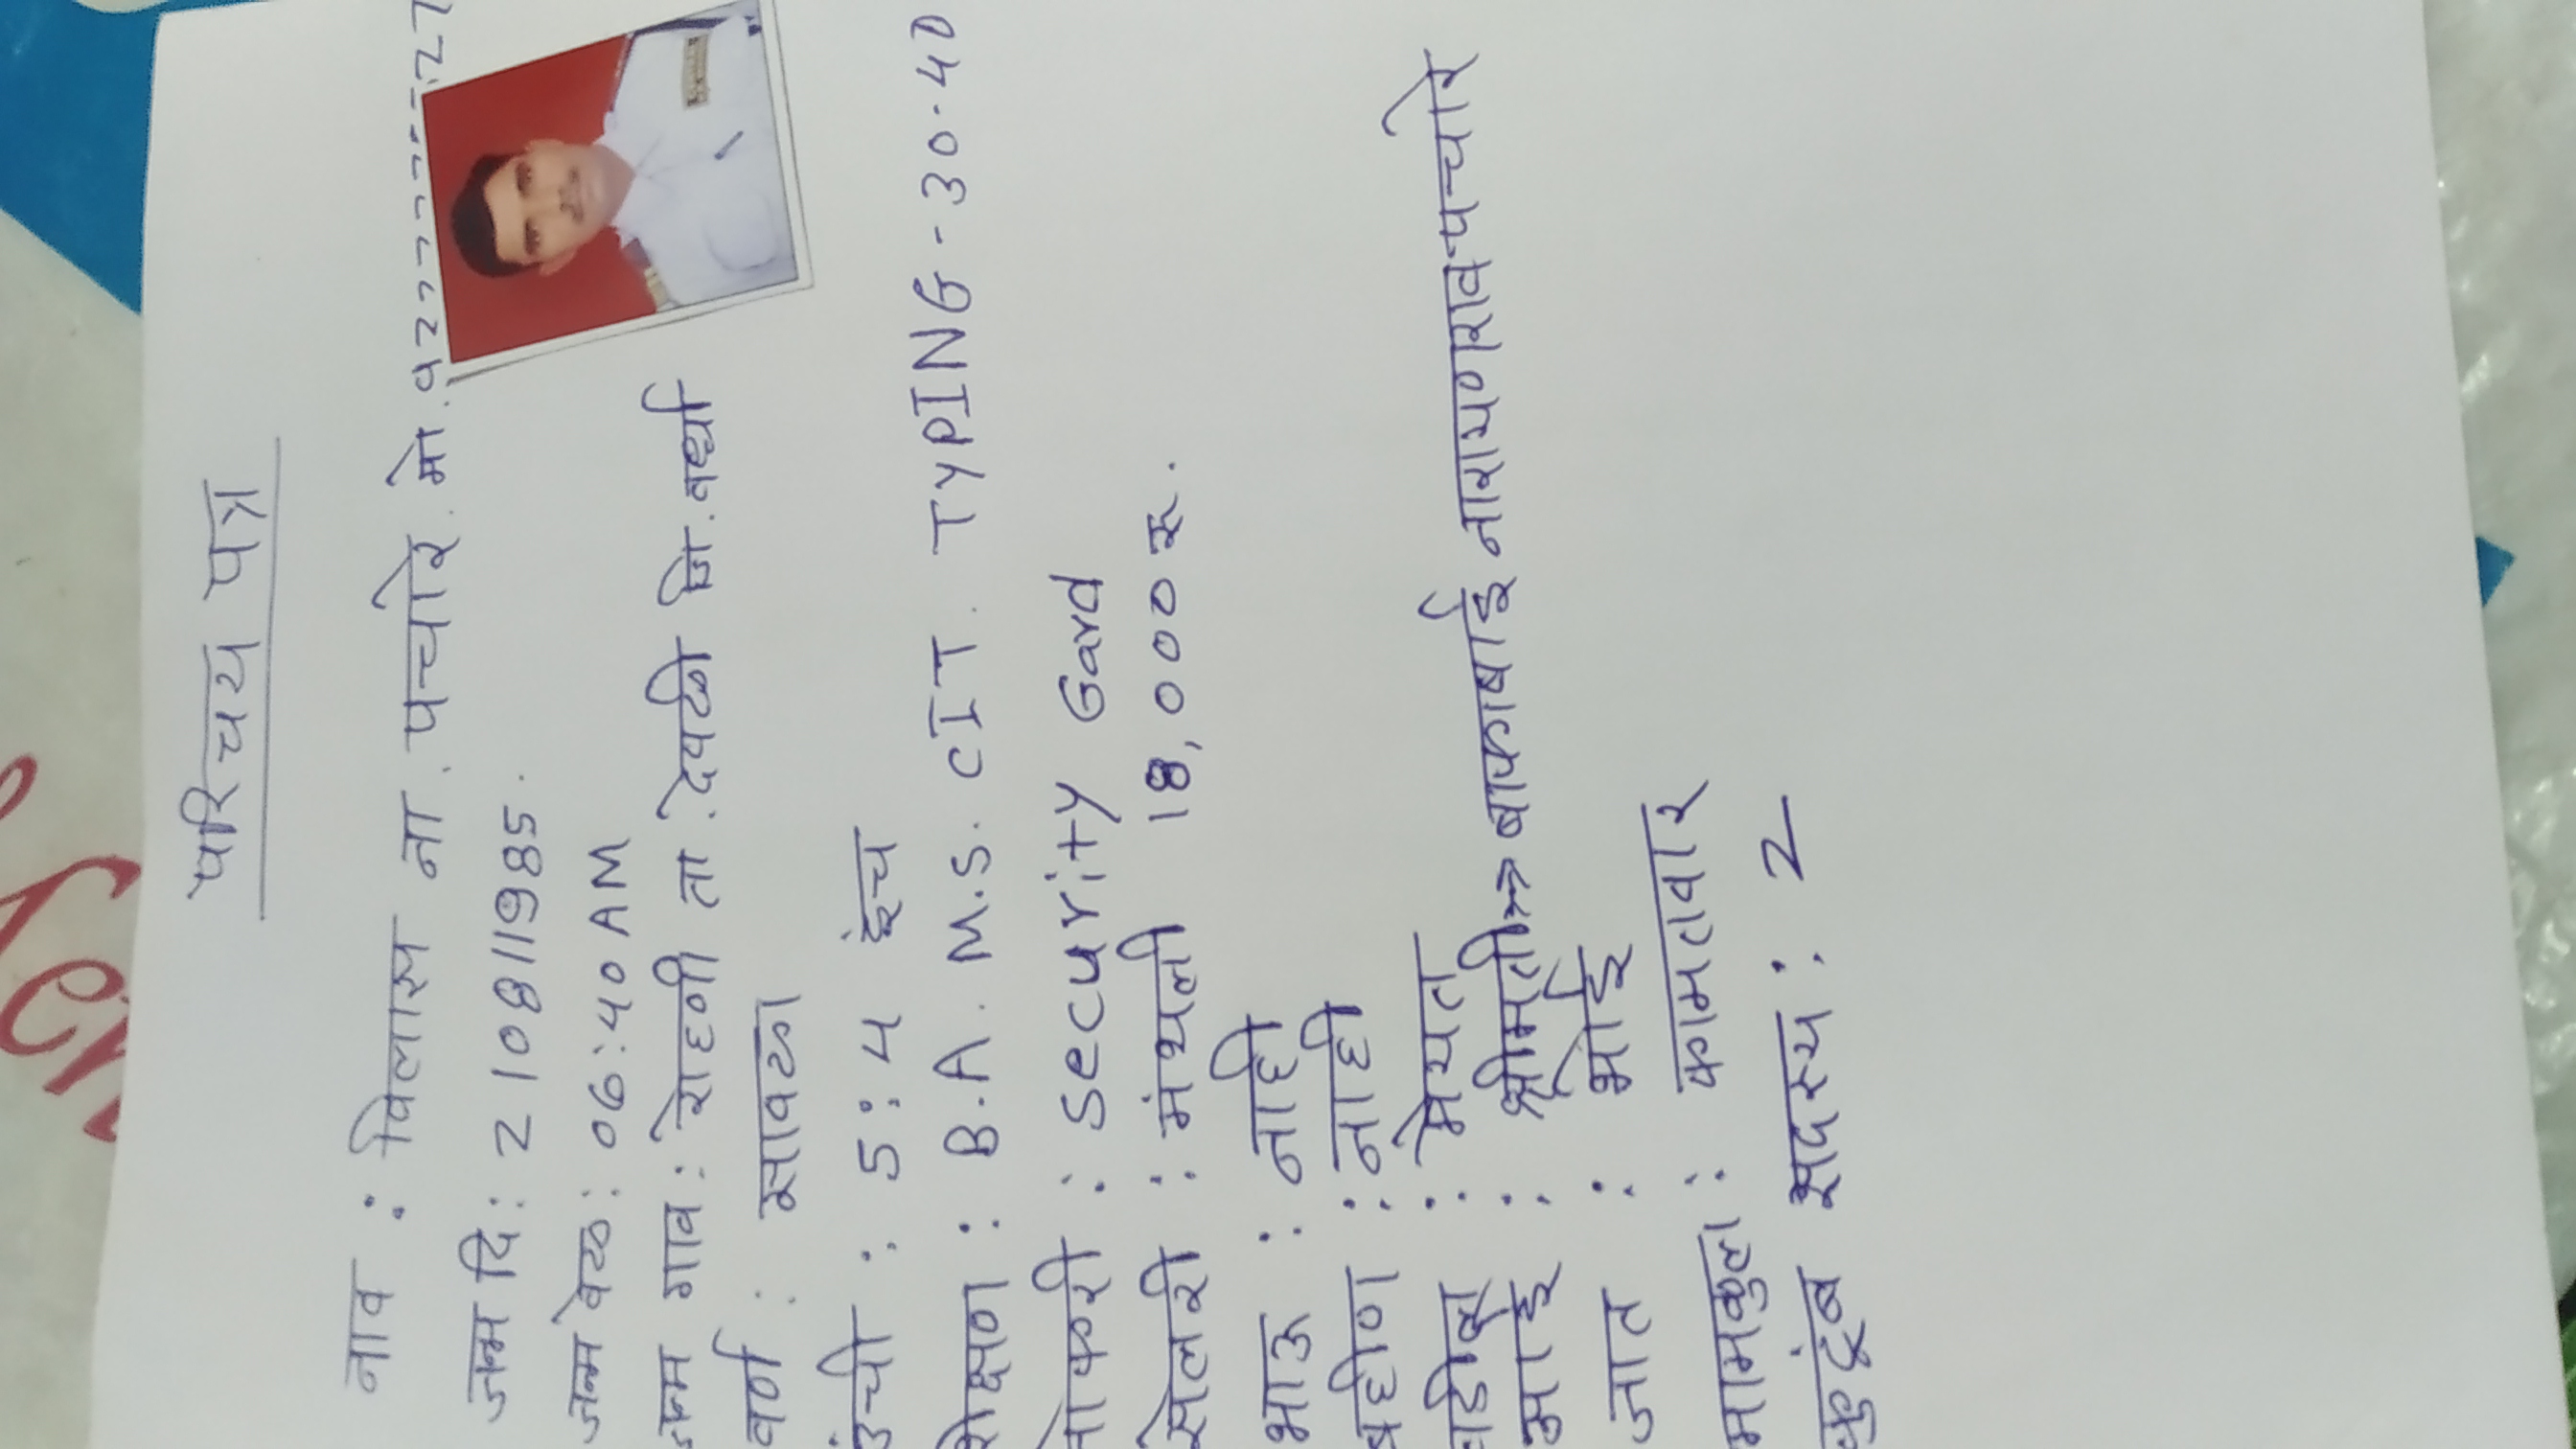 परिचय पत्र
नाव : विलास ना. पन्चोरे. मो.
जन्म दि : 2108/1985.
जन्म वेळ : 06:40 AM
जन्म गाव : रोहणी ता. देवळी जि. वर्धा
वर्ण : सावळा
उंची : 5:4 इंच
शिक्षण : B.A. M.S. CIT. TYPING - 30.40
नोकरी : Security Gard
सेलरी : मंथली 18,000 रू.
भाऊ : नाही
बहीण : नाही
वडील : मेयत
आई : श्रीमती बाकाबाई नारायणराव पन्चोरे
जात : भोई
मामकुळ : कामतवार
कुटूंब सदस्य : 2